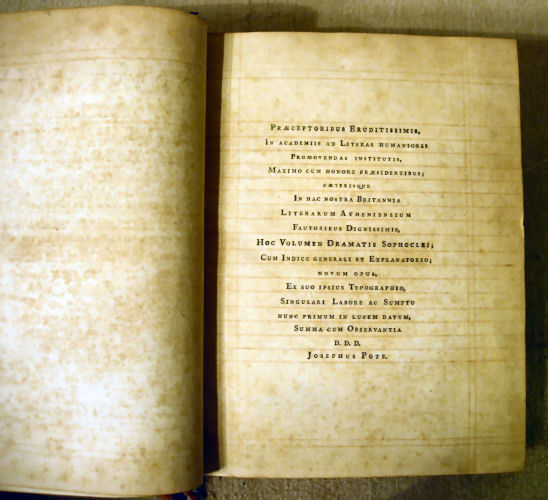 PRÆCEPTORIBUS ERUDITISSIMIS,
IN ACADEMIIS AD LITERAS HUMANIORES
PROMOVENDAS INSTITUTIS,
MAXIMO CUM HONORE PRÆSIDENTIBUS;
CÆTERISQUE
IN HAC NOSTRA BRITANNIA
LITERARUM ATHENIENSIUM
FAUTORIBUS DIGNISSIMIS,
HOC VOLUMEN DRAMATIS SOPHOCLEI;
CUM INDICE GENERALI ET EXPLANATORIO;
NOVUM OPUS,
EX SUO IPSIUS TYPOGRAPHEO,
SINGULARI LABORE AC SUMPTU
NUNC PRIMUM IN LUCEM DATUM,
SUMMA CUM OBSERVANTIA
D. D. D.
JOSEPHUS POTE.